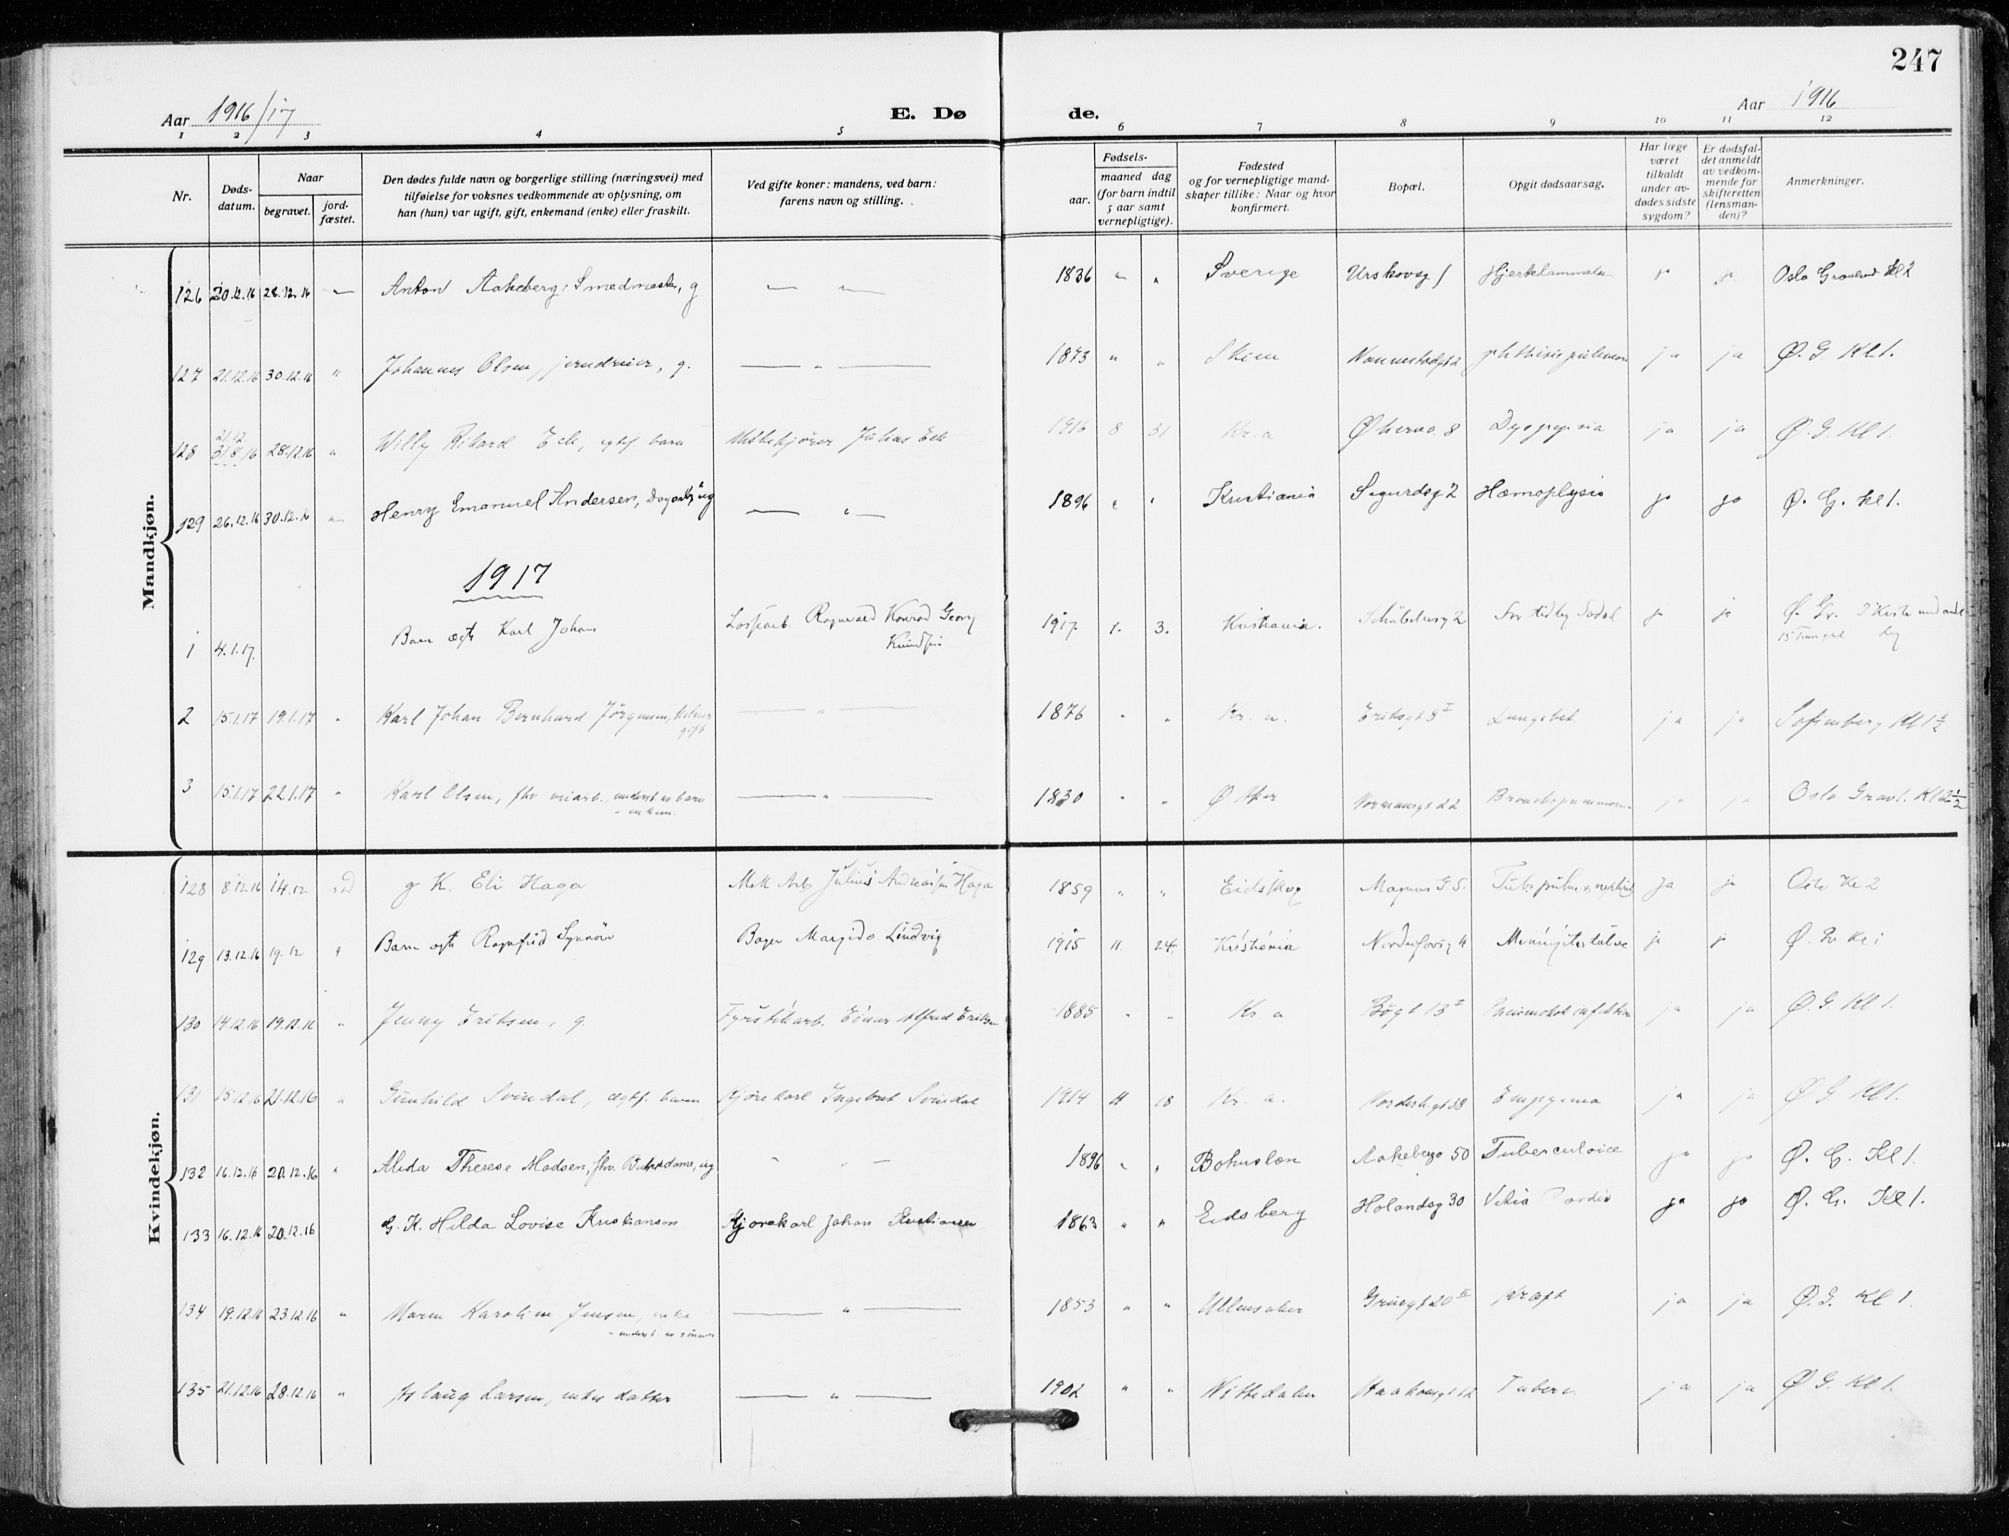 247
Aar 1916/17
E. Dø
de.
Aar 1916
1 2 3 4 5 6 7 8 9 10 11 12
Nr.
Døds-
datum.
Naar
begravet.
jord-
fæstet.
Den dødes fulde navn og borgerlige stilling (næringsvei) med
tilføielse for voksnes vedkommende av oplysning, om
han (hun) var ugift, gift, enkemand (enke) eller fraskilt.
Ved gifte koner: mandens, ved barn:
farens navn og stilling.
Fødsels-
aar.
maaned dag
(for barn indtil
5 aar samt
vernepligtige).
Fødested
og for vernepligtige mand-
skaper tillike: Naar og hvor
konfirmert.
Bopæl.
Opgit dødsaarsag.
Har læge
været
tilkaldt
under av-
dødes sidste
sygdom?
Er dødsfal-
det anmeldt
av vedkom-
mende for
skifteretten
(lensman-
den)?
Anmerkninger.
Mandkjøn.
126 20.12.16 28.12.16 Anton Aakeberg, Smedmester, g 1836 Sverige Urskovsg 1 ja ja Oslo Kl 2
127 21.12.16 30.12.16 " Johannes Olsen, jerndreier, g. — " — 1873 " " Skien phthisis pulmon ja ja Ø. G. Kl 1.
128 21/12 31.8.16 28.12.16 " Willy Rikard Eek, egtf. barn Julius Eek 1916 8 31 Kr.a 8 Dyspepsia ja ja Ø. G. Kl 1.
129 26.12.16 30.12.16 Henry Emanuel Andersen, Dagarb, ug — " — 1896 " " Kristiania Sigurdsg 2 Hæmoptysis ja ja Ø. G. Kl 1.
1917
1 4.1.17. Barn ægte Karl Johan Lossearb. Ragnvald Konrad Georg 1917. 1. 3. Kristiania. 2 For tidlig Fødsel ja ja Ø. Gr.
2 15.1.17 19.1.17 " Karl Johan Bernhard Jørgensen, — " — 1876 " " Kr. a. Eriksgt 8 I Lungebet ja ja Sofienberg Kl 1 1/2
gift
3 15.1.17 22.1.17 " Karl Olsen, fhv. underst. av barn — " — 1830 " " Normannsgt 22 ja ja Oslo Gravl. Kl 2 1/2
- enkem.
Kvindekjøn.
128 8.12.16 14.12 g K. Eli Haga Mek Arb Julius Andreassen Haga 1859 " " Eidskog Magnus G 5. ja ja Oslo Kl 2
129 13.12.16 19.12 " Barn ægte Ragnfrid Synnøve Bager Margido Ludvig 1915 11. 24. Kristiania 4 ja ja Ø. Gr Kl 1
130 14.12.16 19.12.16 " Jenny Eriksen, g. Fyrstikarb. Einar Alfred Eriksen 1885 " " Kr a Bøgt 13 I ja ja Ø. G. Kl 1.
131 15.12.16 21.12.16 " Gunhild Svindal, ægtf. barn Kjørekarl Ingebret Svindal 1914 11 18 Kr. a. 38 Empyema ja ja Ø G Kl 1.
132 16.12.16 20.12.16 " Alida Therese Madsen, fhv. Butikdame, ug " — 1896 " " Bohuslen Aakebergv 50 Tuberculose ja ja Ø. G. Kl 1.
133 16.12.16 20.12.16 G. K. Hilda Lovise Kristiansen Kjørekarl Johan Kristiansen 1863 " " Eidsberg Holandsg 30 Vitia Cordis ja ja Ø. G. Kl 1.
134 19.12.16 23.12.16 " Maren Karoline Jensen, enke — " — 1853 " " Ullensaker Grüegt 20 II kræft ja ja Ø. G. Kl 1.
- underst. av sønner
135 21.12.16 28.12.16 " Aslaug Larsen, enkes datter — " — 1902 " " Nittedalen Haakonsgt 12 Tuberc ja ja Ø G. Kl 1.